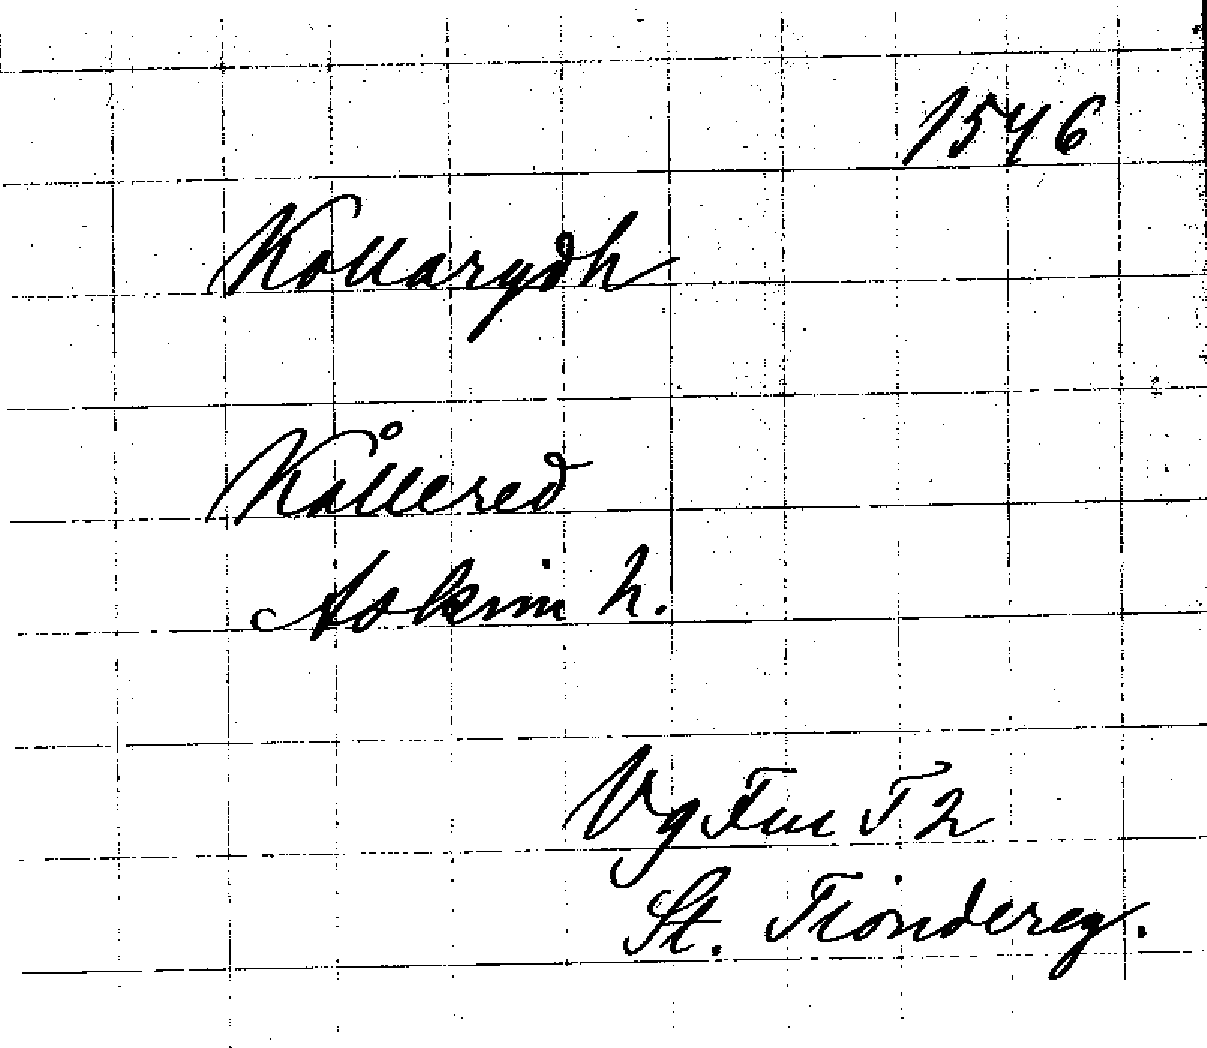 1546
Kollarydh
Kållered
Askim h.
Vg Fur T 2
St. Tiondereg.